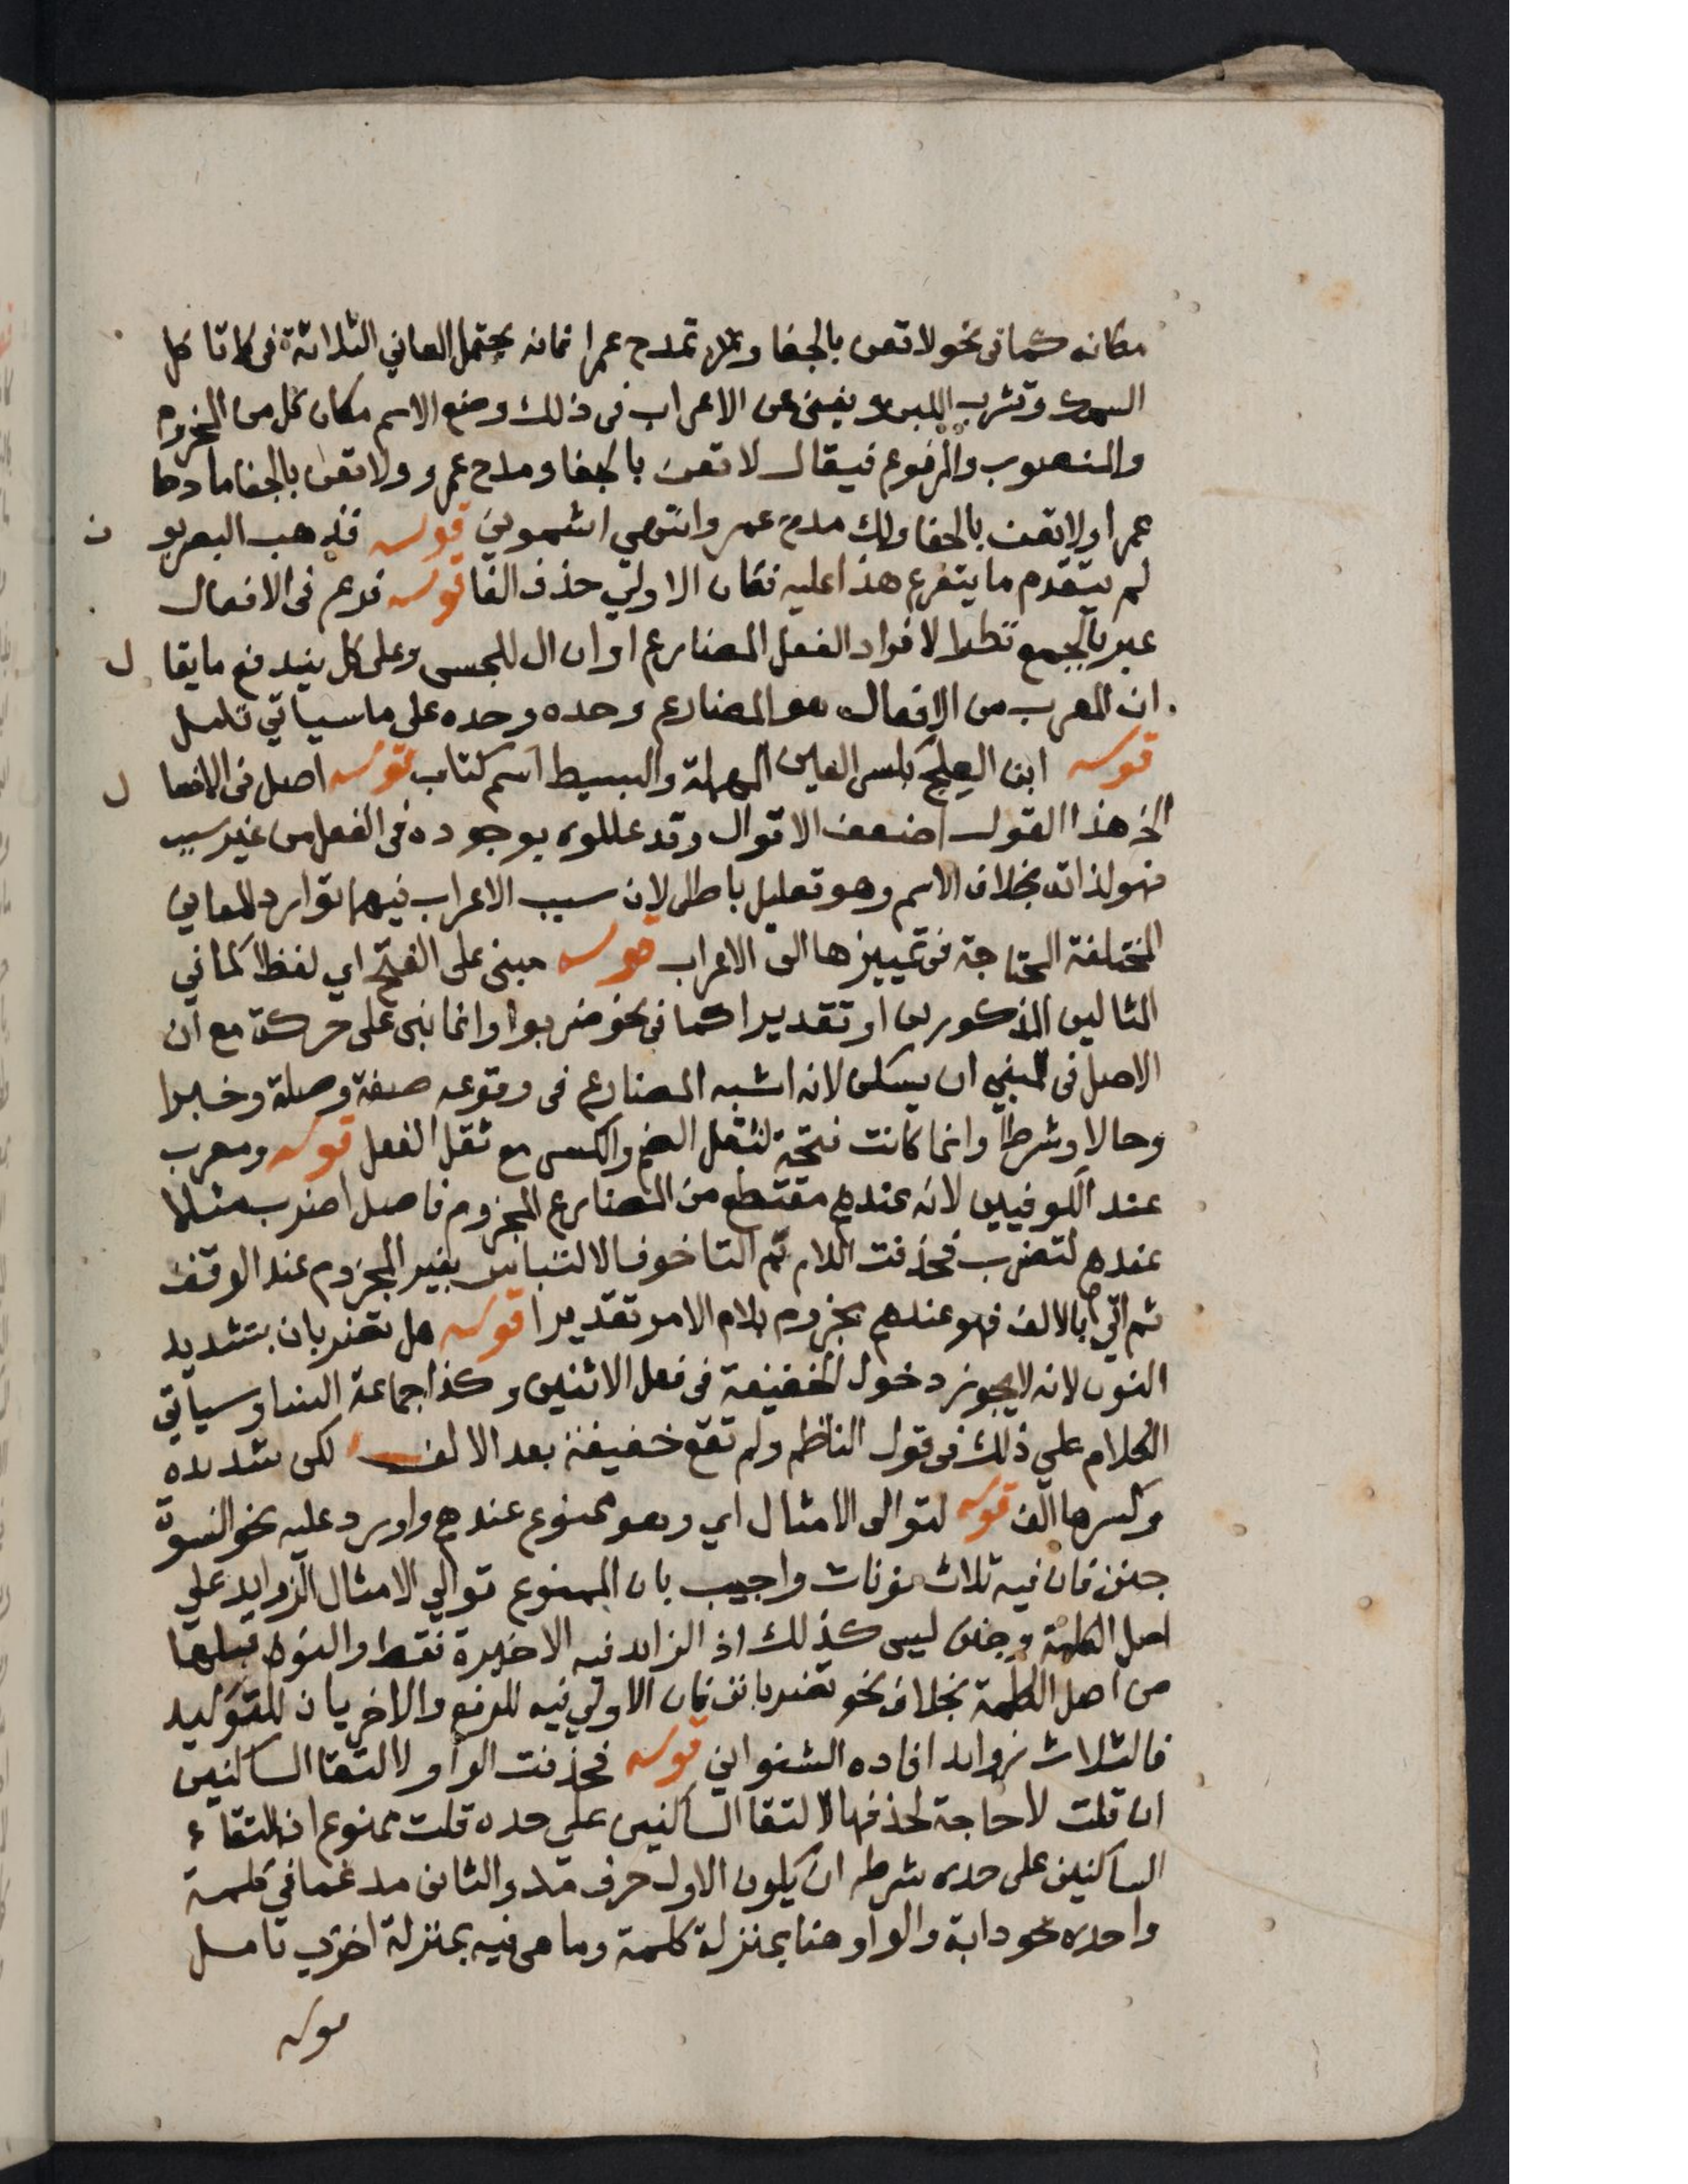 مكانه كما فى نحو لا تعن بالجفا وتمدح عمرا فانه يحتمل المعاني الثلاثة فى لا تاكل
السمك وتشرب اللبن ويغنى عن الاعراب فى ذلك وضع الاسم مكان كل من المجزوم
والمنصوب والمرفوع فيقال لا تعن بالجفا ومدح عمرو ولا تعن بالجفا مادحا
عمرا ولا تعن بالجفا ولك مدح عمرو انتهي اشموني قوله فذهب البصريو ن
لم يتقدم ما يتفرع هذا عليه فكان الاولي حذف الفا قوله فرع فى الافعال
عبر بالجمع نظرا لافراد الفعل المضارع او ان ال للجنس وعلى كل يندفع ما يقا ل
ان المعرب من الافعال هو المضارع وحده وحده على ما سياتي تامل
قوله ابن العلج بكسر العين المهملة والبسيط اسم كتاب قوله اصل فى الافعا ل
الخ هذا القول اضعف الاقوال وقد عللوه بوجوده فى الفعل من غير سبب
فهو لذاته بخلاف الاسم وهو تعليل باطل لان سبب الاعراب فيهما توارد المعاني
المختلفة المحتاجة فى تمييزها الى الاعراب قوله مبنى على الفتح اي لفظا كما في
المثالين المذكورين او تقديرا كما فى نحو ضربوا وانما بنى على حركة مع ان
الاصل فى المبني ان يسكن لانه اشبه المضارع فى وقوعه صفة وصلة وخبرا
وحالا وشرطا وانما كانت فتحة لثقل الضم والكسر مع ثقل الفعل قوله ومعرب
عند الكوفيين لانه عندهم مقتطع من المضارع المجزوم فاصل اضرب مثلا
عندهم لتضرب فحذفت اللام ثم التا خوف الالتباس بغير المجزوم عند الوقف
ثم اتي بالالف فهو عندهم مجزوم بلام الامر تقديرا قوله هل تضربان بتشديد
النون لانه لا يجوز دخول الخفيفة فى فعل الاثنين وكذا جماعة النسا وسياتي
الكلام علي ذلك فى قول الناظم ولم تقع خفيفة بعد الالف لكن شديده
وكسرها الف قوله لتوالى الامثال اي وهو ممنوع عندهم واورد عليه نحو النسوة
جنن فان فيه ثلاث نونات واجيب بان الممنوع توالي الامثال الزوايد علي
اصل الكلمة وجنن ليس كذلك اذ الزايد فيه الاخيرة فقط والنون قبلها
من اصل الكلمة بخلاف نحو تضربانن فان الاولي فيه للرفع والاخريان للتوكيد
فالثلاث زوايد افاده الشنواني قوله فحذفت الواو لالتقا الساكنين
ان قلت لا حاجة لحذفها لالتقا الساكنين علي حده قلت ممنوع اذ التقاء
الساكنين على حده شرطه ان يكون الاول حرف مد والثانى مدغما في كلمة
واحده نحو دابة والواو هنا بمنزلة كلمة وما هى فيه بمنزلة اخري تامل
قوله